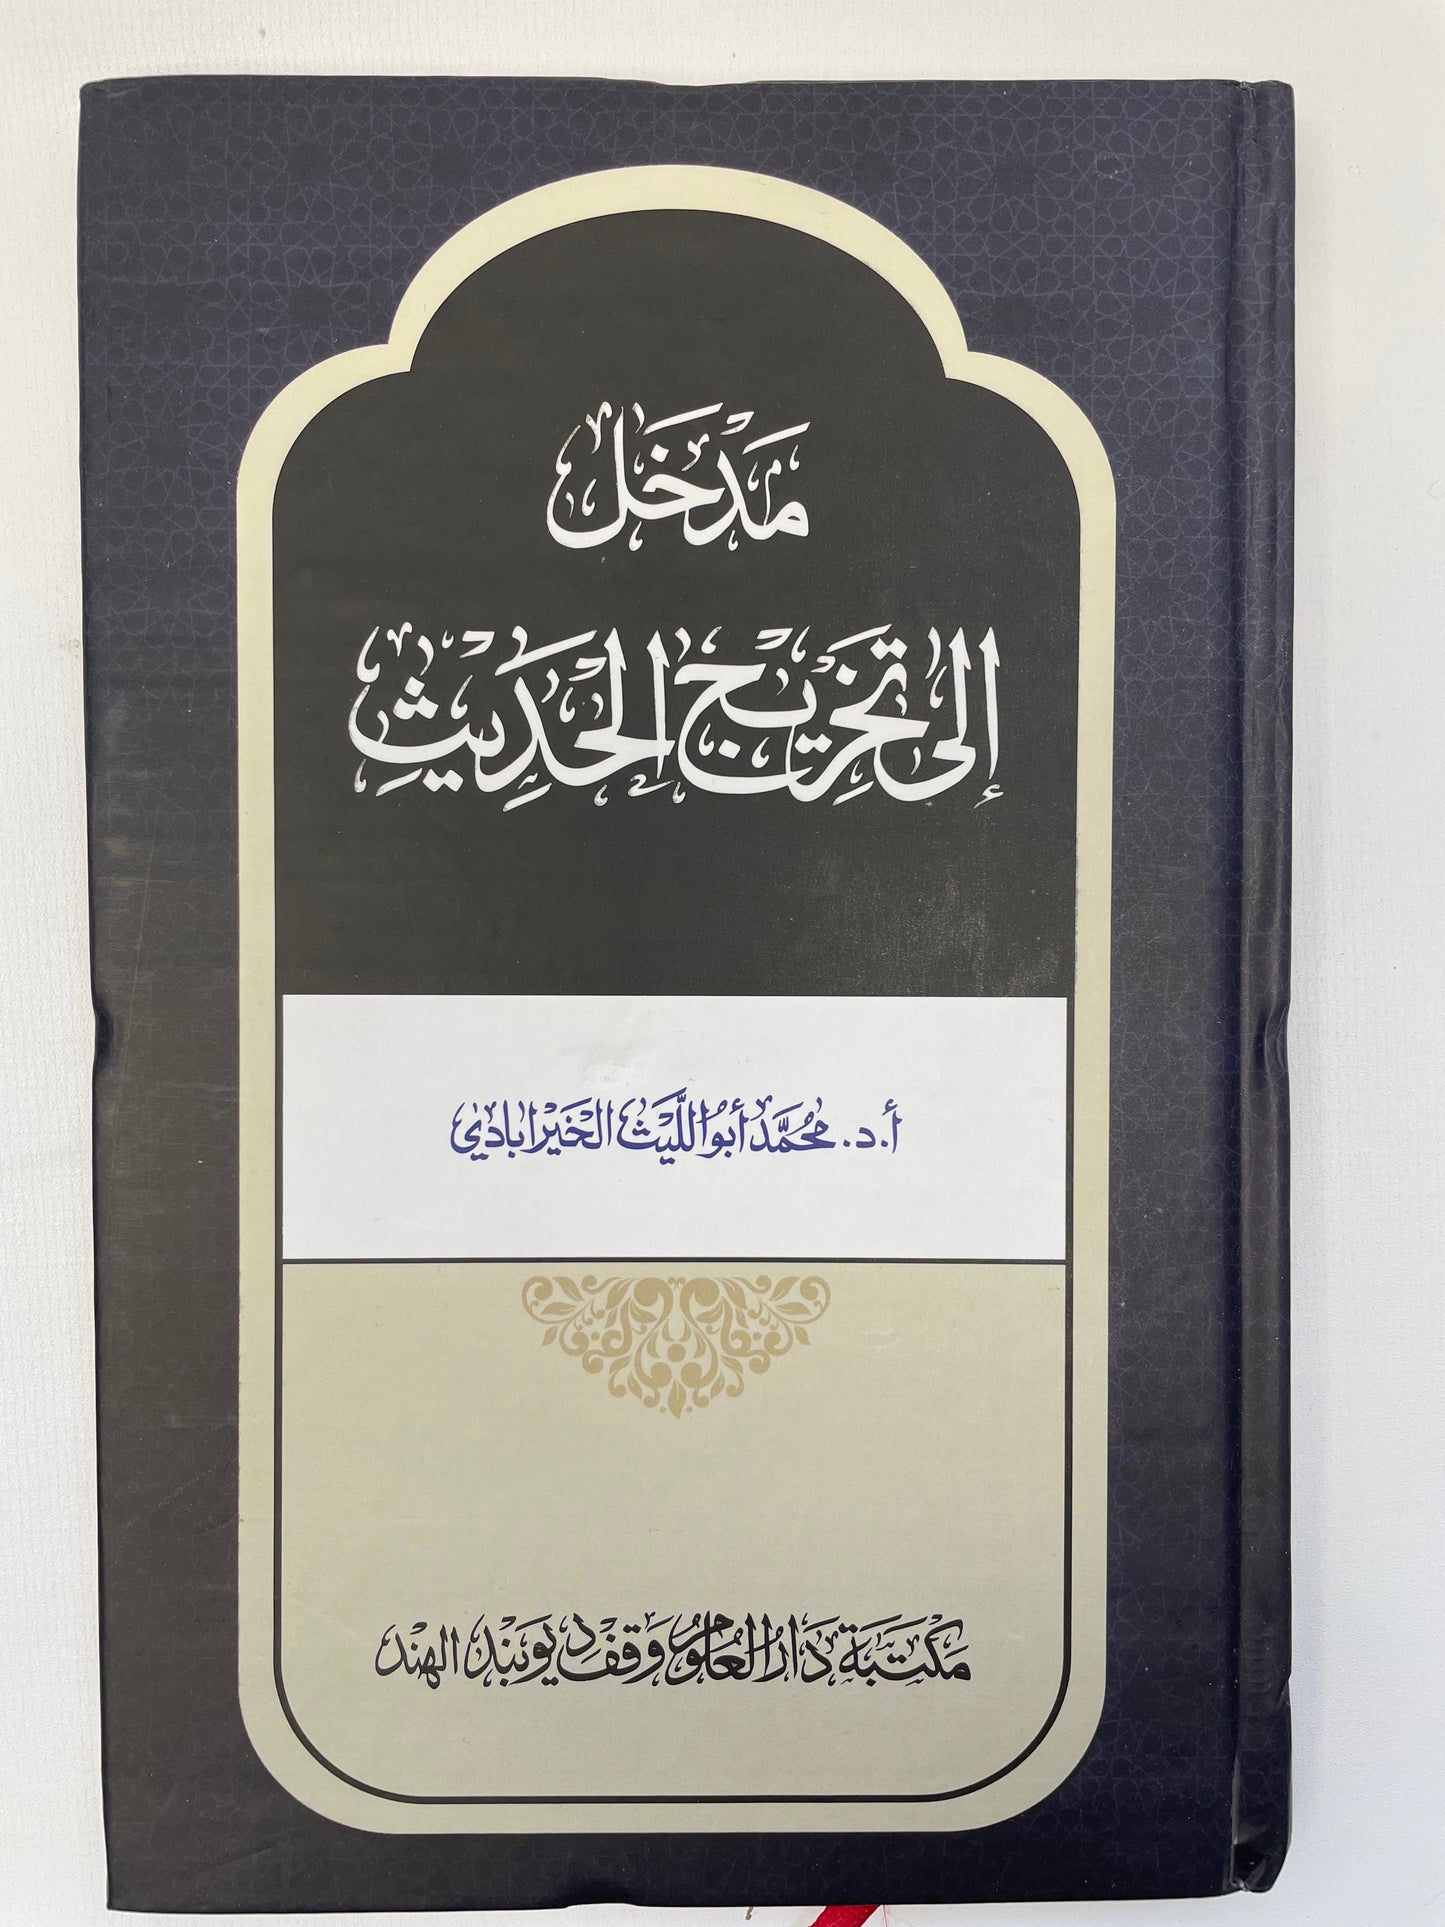 مَدْخَل
إلى تخريج الحَدِيثِ
أ.د. محمَّد أبو اللَّيث الخَيْرآبادي
مكتَبَة دَارُ العُلوم وَقف ديوبَند الهِند